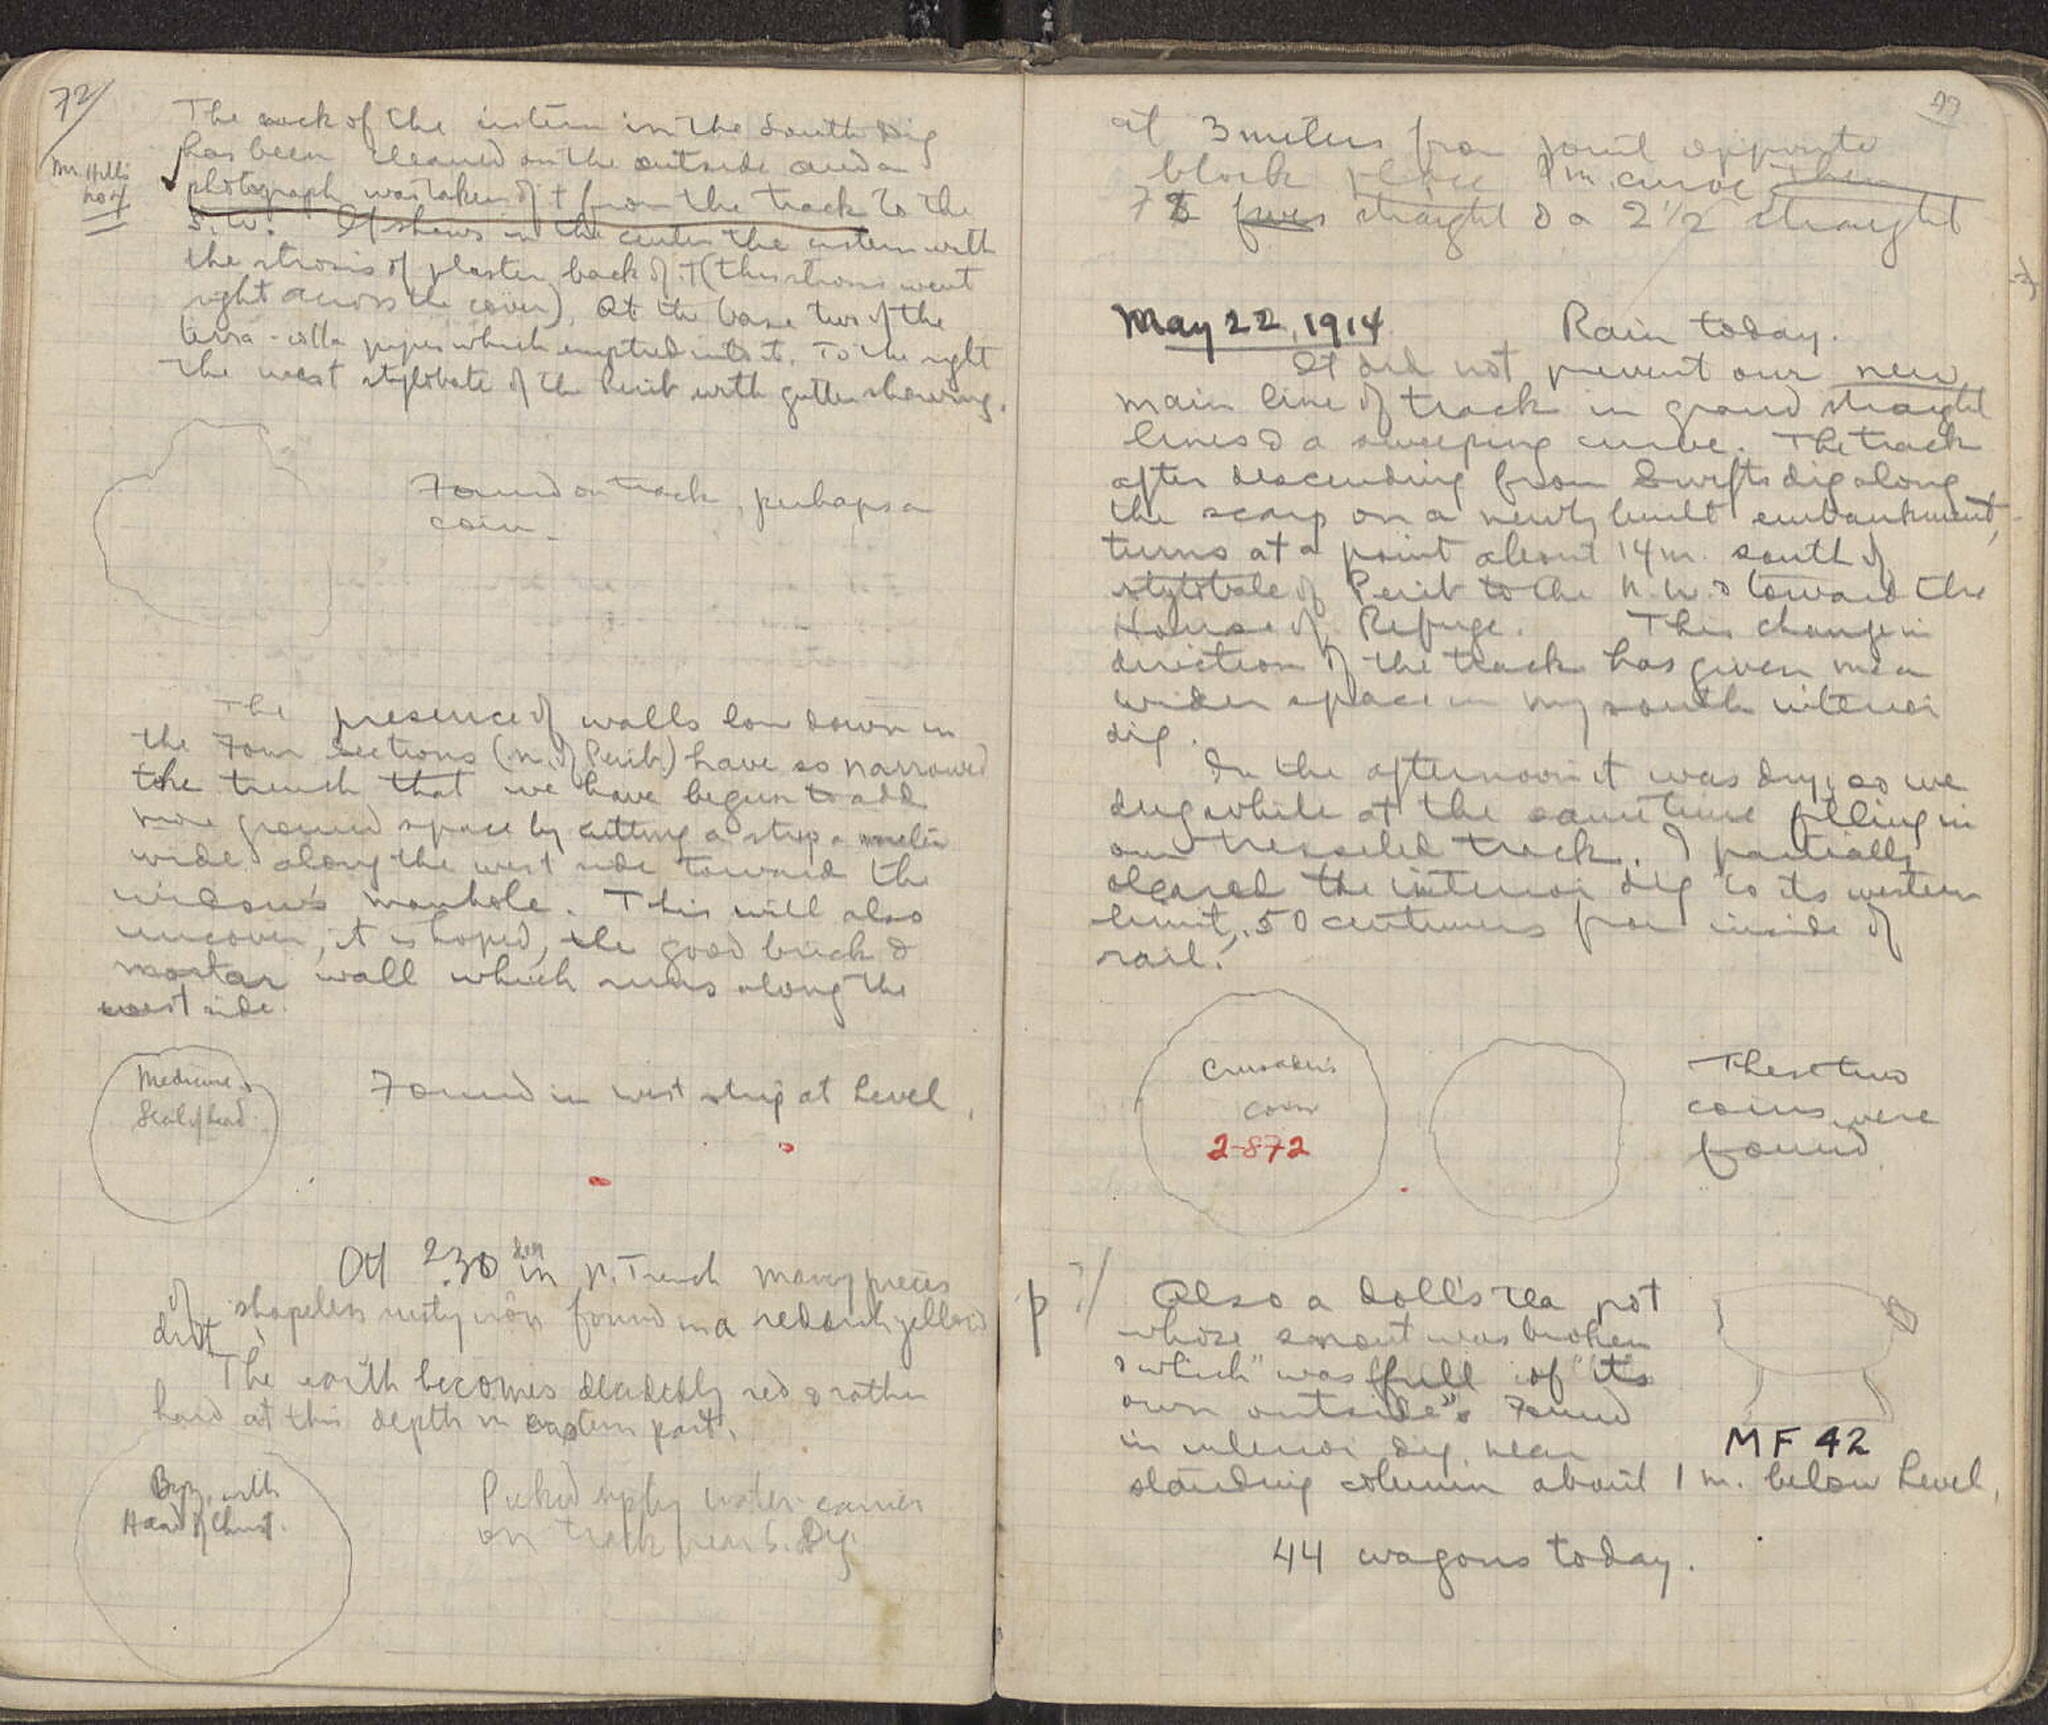 72
The rock of the cistern in the South Dig
has been cleaned on the outside and a
Mr. Hill's
photograph was taken of it from the track to the
S.W. It shows in the center the cistern with
the strosis of plaster back of it (this strosis went
right across the cover). At the base two of the
terra-cotta pipes which emptied into it. To the right
the west stylobate of the Perib with gutter showing.
Found on track, perhaps a
coin.
The presence of walls low down in
the Four Sections (N. of Perib.) have so narrowed
the trench that we have begun to add
more ground space by cutting a strip a meter
wide along the west side toward the
widow's manhole. This will also
uncover, it is hoped, the good brick &
mortar wall which runs along the
west side.
Medicine
Seal of lead
Found in west strip at Level.
At 2.30 in N. Trench many pieces
of shapeless rusty iron found in a reddish yellow
dirt.
The earth becomes decidedly red & rather
hard at this depth in eastern part.
Byz. with
Head of Christ.
Picked up by water-carrier
on track near S. Dig
at 3 meters from joint opposite
block place 1 m. curve then
7 straight & a 2 1/2 straight
May 22, 1914 Rain today.
It did not prevent our new
main line of track in grand straight
lines & a sweeping curve. The track
after descending from Swift's dig along
the scarp on a newly built embankment,
turns at a point about 14 m. south of
stylobate of Perib to the N.W. & toward the
House of Refuge. This change in
direction of the track has given me a
wider space in my south interior
dig.
In the afternoon it was dry, so we
dug while at the same time filling in
our tresseled track. I partially
cleared the interior dig to its western
limit, .50 centimes from inside of
rail.
Crusader's
coin
2-872
These two
coins were
found.
p ?/
Also a doll's tea pot
whose snout was broken
& which "was full of "its
own outside". Found
in interior dig near
MF 42
standing column about 1 m. below Level.
44 wagons today.